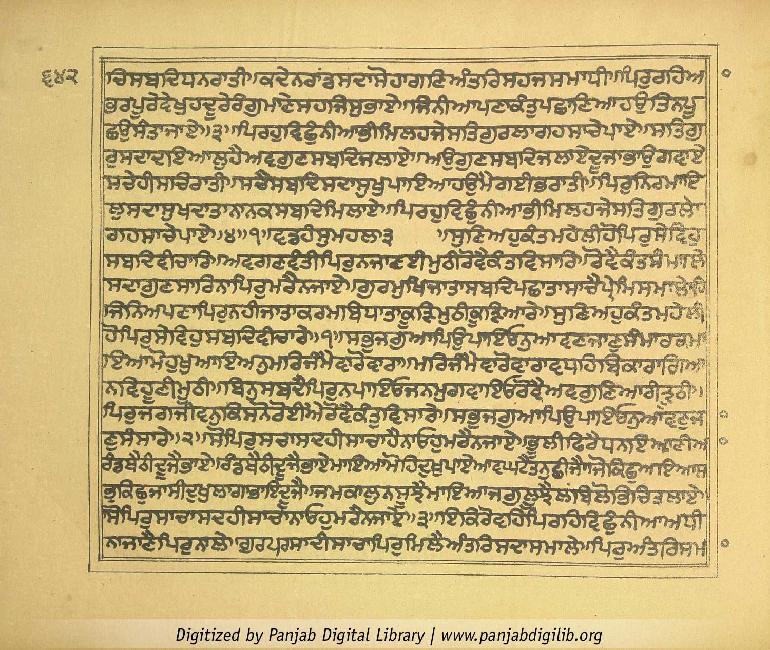 ੬੪੨
ਚਿਸਬਦਿਧਨਰਾਤੀ॥ਕਦੇਨਰਾਂਡਸਦਾਸੋਹਾਗਣਿਅੰਤਰਿਸਹਜਸਮਾਧੀ॥ਪਿਰੁਰਹਿਆ
ਭਰਪੂਰੇਦੇਖੁਹਦੂਰੇਰੰਗੁਮਾਣੇਸਹਜਿਸੁਭਾਏ॥ਜਿਨੀਆਪਣਾਕੰਤੁਪਛਾਣਿਆਹਉਤਿਨਪੂ
ਛਉਸੰਤਾਜਾਏ॥੩॥ਪਿਰਹੁਵਿਛੁੰਨੀਆਭੀਮਿਲਹਜੇਸਤਿਗੁਰਲਾਗਹਸਾਚੇਪਾਏ॥ਸਤਿਗੁ
ਰੁਸਦਾਦਇਆਲੁਹੈਅਵਗੁਣਸਬਦਿਜਲਾਏ॥ਅਉਗੁਣਸਬਦਿਜਲਾਏਦੂਜਾਭਾਉਗਵਾਏ
ਸਚੇਹੀਸਚਿਰਾਤੀ॥ਸਚੈਸਬਦਿਸਦਾਸੁਖੁਪਾਇਆਹਉਮੈਗਈਭਰਾਤੀ॥ਪਿਰੁਨਿਰਮਾਇ
ਲੁਸਦਾਸੁਖਦਾਤਾਨਾਨਕਸਬਦਿਮਿਲਾਏ॥ਪਿਰਹੁਵਿਛੁੰਨੀਆਭੀਮਿਲਹਜੇਸਤਿਗੁਰਲਾ
ਗਹਸਾਚੇਪਾਏ॥੪॥੧॥ਵਡਹੰਸੁਮਹਲਾ੩ ॥ਸੁਣਿਅਹੁਕੰਤਮਹੇਲੀਹੋਪਿਰੁਸੇਵਿਹੁ
ਸਬਦਿਵੀਚਾਰਿ॥ਅਵਗਣਵੰਤੀਪਿਰੁਨਜਾਣਈਮੁਠੀਰੋਵੈਕੰਤਵਿਸਾਰਿ॥ਰੋਵੈਕੰਤਸੰਮਾਲਿ
ਸਦਾਗੁਣਸਾਰਿਨਾਪਿਰੁਮਰੈਨਜਾਏ॥ਗੁਰਮੁਖਿਜਾਤਾਸਬਦਿਪਛਾਤਾਸਾਚੈਪ੍ਰੇਮਿਸਮਾਏ
ਜਿਨਿਅਪਣਾਪਿਰੁਨਹੀਜਾਤਾਕਰਮਬਿਧਾਤਾਕੂੜਿਮੁਠੀਕੂੜਿਆਰੇ॥ਸੁਣਿਅਹੁਕੰਤਮਹੇਲੀ
ਹੋਪਿਰੁਸੇਵਿਹੁਸਬਦਿਵੀਚਾਰੇ॥੧॥ਸਭੁਜਗੁਆਪਿਉਪਾਇਓਨੁਆਵਣੁਜਾਣੁਸੰਸਾਰਾ॥ਮਾ
ਇਆਮੋਹੁਖੁਆਇਅਨੁਮਰਿਜੰਮੈਵਾਰੋਵਾਰਾ॥ਮਰਿਜੰਮੈਵਾਰੋਵਾਰਾਵਧਹਿਬਿਕਾਰਾਗਿਆ
ਨਵਿਹੂਣੀਮੂਠੀ॥ਬਿਨੁਸਬਦੈਪਿਰੁਨਪਾਇਓਜਨਮੁਗਵਾਇਓਰੋਵੈਅਵਗੁਣਿਆਰੀਝੂਠੀ॥
ਪਿਰੁਜਗਜੀਵਨੁਕਿਸਨੋਰੋਈਐਰੋਵੈਕੰਤੁਵਿਸਾਰੇ॥ਸਭੁਜਗੁਆਪਿਉਪਾਇਓਨੁਆਵਣੁਜਾ
ਣੁਸੰਸਾਰੇ॥੨॥ਸੋਪਿਰੁਸਚਾਸਦਹੀਸਾਚਾਹੈਨਾਓਹੁਮਰੈਨਜਾਏ॥ਭੂਲੀਫਿਰੈਧਨਇਆਣੀਆ
ਰੰਡਬੈਠੀਦੂਜੈਭਾਏ॥ਰੰਡਬੈਠੀਦੂਜੈਭਾਏਮਾਇਆਮੋਹਿਦੁਖੁਪਾਏਆਵਘਟੈਤਨੁਛੀਜੈ॥ਜੋਕਿਛੁਆਇਆਸ
ਭੁਕਿਛੁਜਾਸੀਦੁਖੁਲਾਗਾਭਾਇਦੂਜੈ॥ਜਮਕਾਲੁਨਸੂਝੈਮਾਇਆਜਗੁਲੂਝੈਲਬਿਲੋਭਿਚਿਤੁਲਾਏ॥
ਸੋਪਿਰੁਸਾਚਾਸਦਹੀਸਾਚਾਨਾਓਹੁਮਰੈਨਜਾਏ॥੩॥ਇਕਿਰੋਵਹਿਪਿਰਹਿਵਿਛੁੰਨੀਆਅੰਧੀ
ਨਾਜਾਣੈਪਿਰੁਨਾਲੇ॥ਗੁਰਪਰਸਾਦੀਸਾਚਾਪਿਰੁਮਿਲੈਅੰਤਰਿਸਦਾਸਮਾਲੇ॥ਪਿਰੁਅੰਤਰਿਸਮਾ
Digitized by Panjab Digital Library | www.panjabdigilib.org